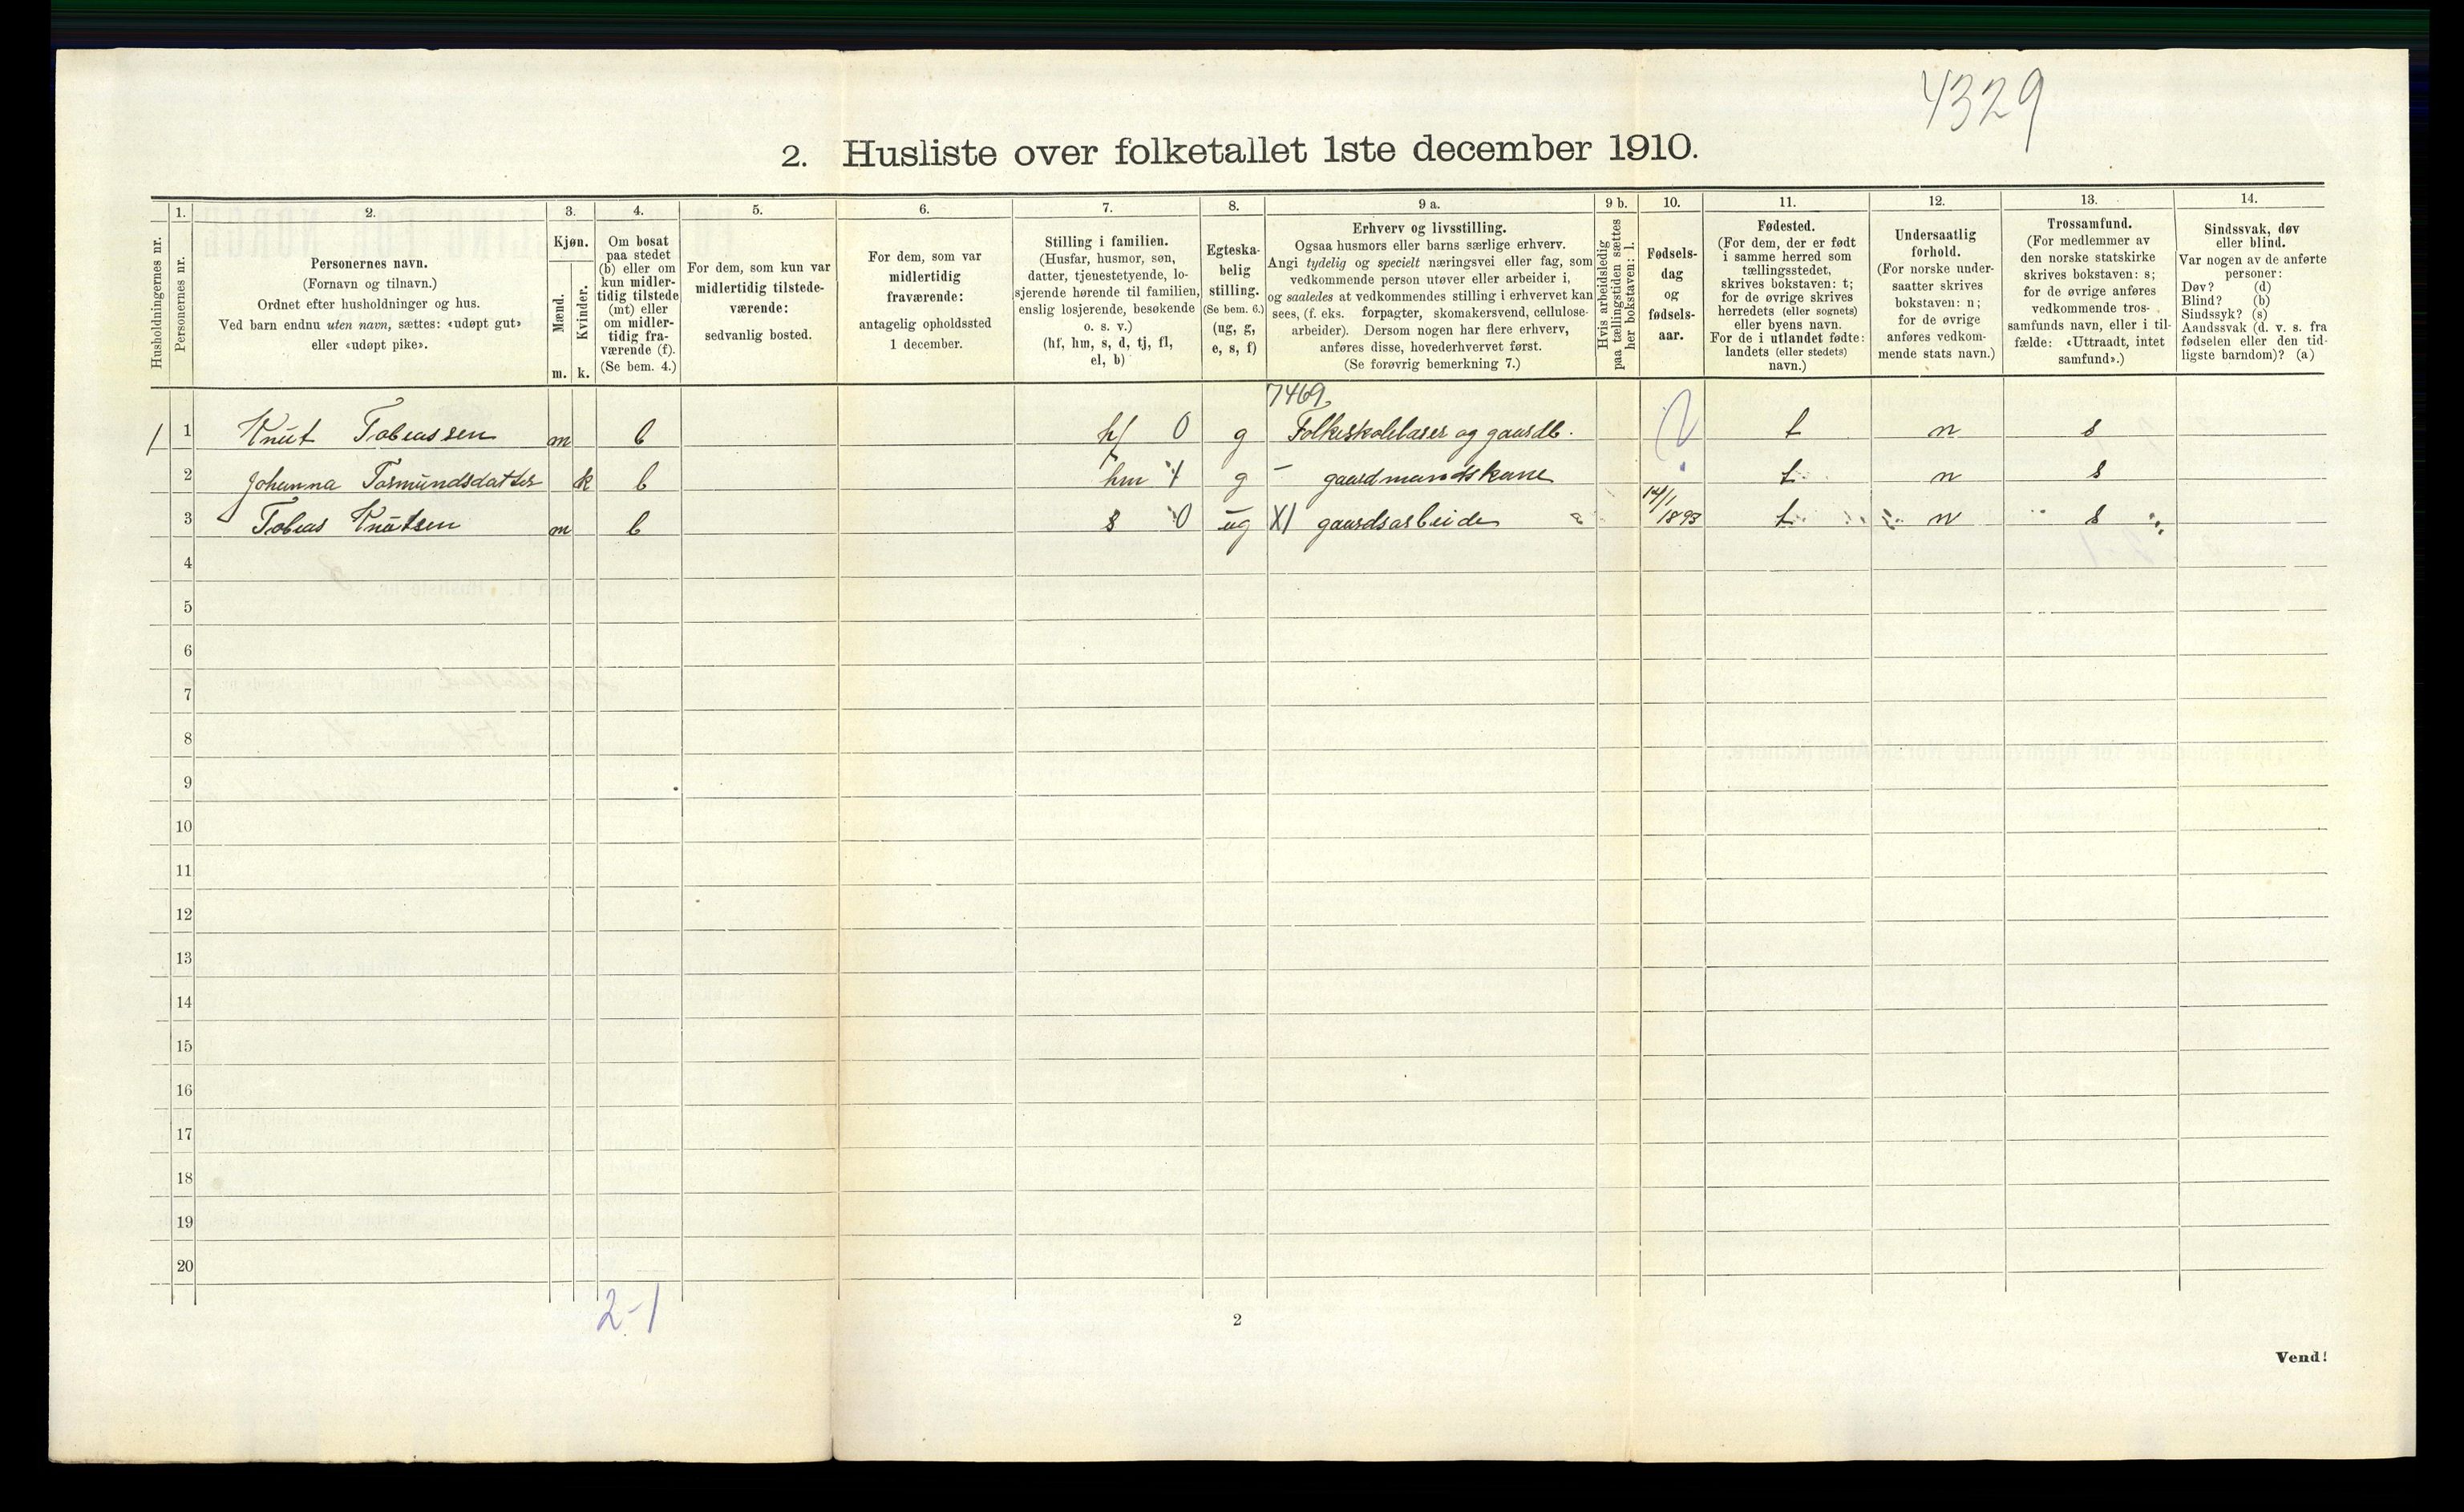 4329
2. Husliste over folketallet 1ste december 1910.
Husholdningernes nr.
1.
Personernes nr.
2.
Personernes navn.
(Fornavn og tilnavn.)
Ordnet efter husholdninger og hus.
Ved barn endnu uten navn, sættes: «udøpt gut»
eller «udøpt pike».
3.
Kjøn.
Mænd.
Kvinder.
m. k.
4.
Om bosat
paa stedet
(b) eller om
kun midler-
tidig tilstede
(mt) eller
om midler-
tidig fra-
værende (f).
(Se bem. 4.)
5.
For dem, som kun var
midlertidig tilstede-
værende:
sedvanlig bosted.
6.
For dem, som var
midlertidig
fraværende:
antagelig opholdssted
1 december.
7.
Stilling i familien.
(Husfar, husmor, søn,
datter, tjenestetyende, lo-
sjerende hørende til familien,
enslig losjerende, besøkende
o. s. v.)
(hf, hm, s, d, tj, fl,
el, b)
8.
Egteska-
belig
stilling.
(Se bem. 6.)
(ug, g,
e, s, f)
9 a.
Erhverv og livsstilling.
Ogsaa husmors eller barns særlige erhverv.
Angi tydelig og specielt næringsvei eller fag, som
vedkommende person utøver eller arbeider i,
og saaledes at vedkommendes stilling i erhvervet kan
sees, (f. eks. forpagter, skomakersvend, cellulose-
arbeider). Dersom nogen har flere erhverv,
anføres disse, hovederhvervet først.
(Se forøvrig bemerkning 7.)
9 b.
Hvis arbeidsledig
paa tællingstiden sættes
her bokstaven: l.
10.
Fødsels-
dag
og
fødsels-
aar.
11.
Fødested.
(For dem, der er født
i samme herred som
tællingsstedet,
skrives bokstaven: t;
for de øvrige skrives
herredets (eller sognets)
eller byens navn.
For de i utlandet fødte:
landets (eller stedets)
navn.)
12.
Undersaatlig
forhold.
(For norske under-
saatter skrives
bokstaven: n;
for de øvrige
anføres vedkom-
mende stats navn.)
13.
Trossamfund.
(For medlemmer av
den norske statskirke
skrives bokstaven: s;
for de øvrige anføres
vedkommende tros-
samfunds navn, eller i til-
fælde: «Uttraadt, intet
samfund».)
14.
Sindssvak, døv
eller blind.
Var nogen av de anførte
personer:
Døv? (d)
Blind? (b)
Sindssyk? (s)
Aandssvak (d. v. s. fra
fødselen eller den tid-
ligste barndom)? (a)
7469
1 1 Knut Tobiassen m b hf 0 g Folkeskolelærer og gaardb. ? t n s
2 Johanna Tormundsdatter k b hm 1 g - gaardmandskone t n s
3 Tobias Knutsen m b s 0 ug X) gaardsarbeide 14/1 1893 t n s
4
5
6
7
8
9
10
11
12
13
14
15
16
17
18
19
20
2-1
2
Vend!